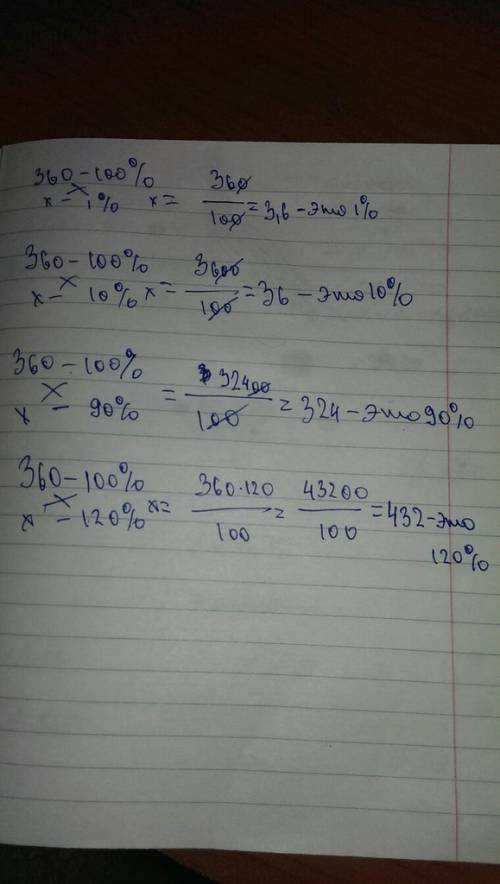 360 - 100%
x - 1% x = 360/100 = 3,6 - это 1%
360 - 100%
x - 10% x = 3600/100 = 36 - это 10%
360 - 100%
x - 90% = 32400/100 = 324 - это 90%
360 - 100%
x - 120% x = 360·120/100 = 43200/100 = 432 - это
120%